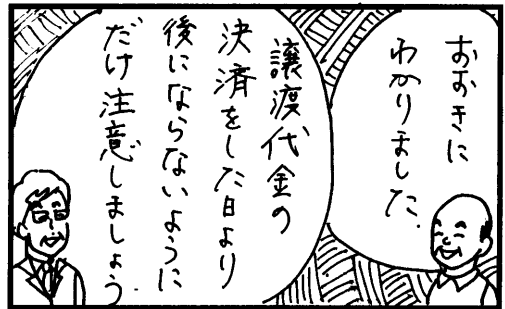 おおきに
わかりました.
譲渡代金の
決済をした日より
後にならないように
だけ注意しましょう